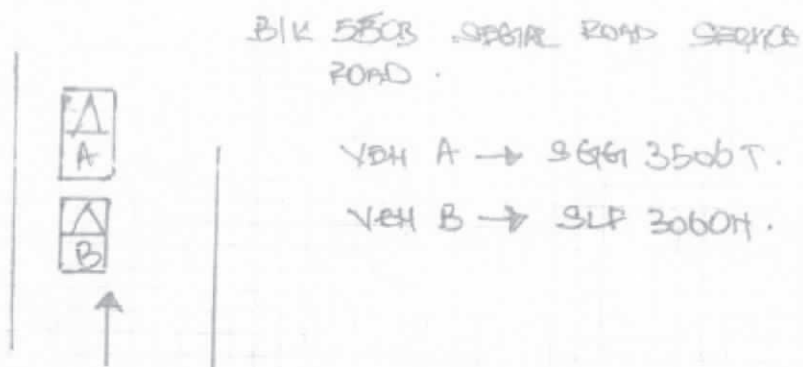 Blk 550B SEGAR ROAD SERVICE
ROAD.
A
VEH A → SGG 3506T.
VEH B → SLP 3060H.
B